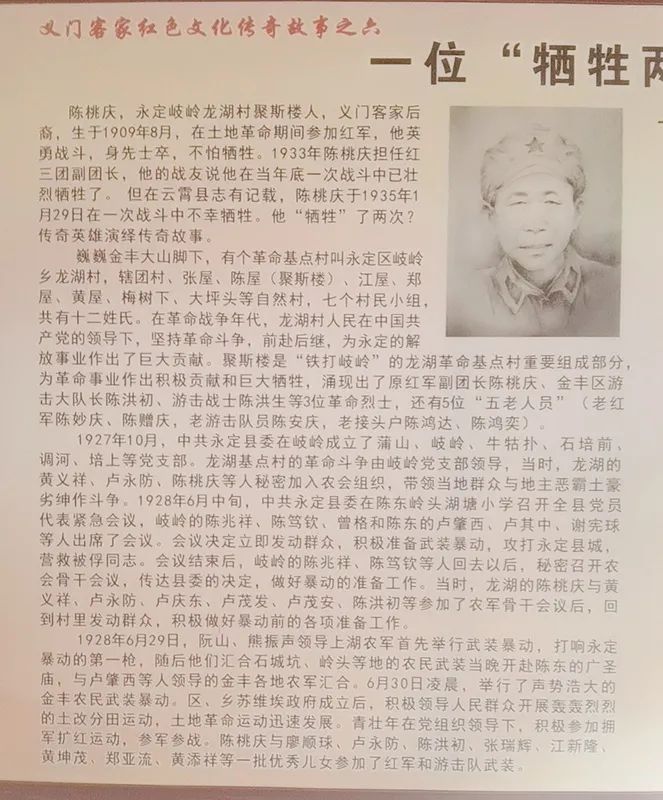 义门客家红色文化传奇故事之六
一位“牺牲两
陈桃庆，永定岐岭龙湖村聚斯楼人，义门客家后
裔，生于1909年8月，在土地革命期间参加红军，他英
勇战斗，身先士卒，不怕牺牲。1933年陈桃庆担任红
三团副团长，他的战友说他在当年底一次战斗中已壮
烈牺牲了。 但在云霄县志有记载，陈桃庆于1935年1
月29日在一次战斗中不幸牺牲。他“牺牲”了两次？
传奇英雄演绎传奇故事。
巍巍金丰大山脚下，有个革命基点村叫永定区岐岭
乡龙湖村，辖团村、张屋、陈屋（聚斯楼）、江屋、郑
屋、黄屋、梅树下、大坪头等自然村，七个村民小组，
共有十二姓氏。在革命战争年代，龙湖村人民在中国共
产党的领导下，坚持革命斗争，前赴后继，为永定的解
放事业作出了巨大贡献。聚斯楼是“铁打岐岭”的龙湖革命基点村重要组成部分，
为革命事业作出积极贡献和巨大牺牲，涌现出了原红军副团长陈桃庆、金丰区游
击大队长陈洪初、游击战士陈洪生等3位革命烈士，还有5位“五老人员”（老红
军陈妙庆、陈赠庆，老游击队员陈安庆，老接头户陈鸿达、陈鸿奕）。
1927年10月，中共永定县委在岐岭成立了蒲山、岐岭、牛牯扑、石培前、
调河、培上等党支部。龙湖基点村的革命斗争由岐岭党支部领导，当时，龙湖的
黄义祥、卢永防、陈桃庆等人秘密加入农会组织，带领当地群众与地主恶霸土豪
劣绅作斗争。1928年6月中旬，中共永定县委在陈东岭头湖塘小学召开全县党员
代表紧急会议，岐岭的陈兆祥、陈笃钦、曾格和陈东的卢肇西、卢其中、谢宪球
等人出席了会议。会议决定立即发动群众，积极准备武装暴动，攻打永定县城，
营救被俘同志。会议结束后，岐岭的陈兆祥、陈笃钦等人回去以后，秘密召开农
会骨干会议，传达县委的决定，做好暴动的准备工作。当时，龙湖的陈桃庆与黄
义祥、卢永防、卢庆东、卢茂发、卢茂安、陈洪初等参加了农军骨干会议后，回
到村里发动群众，积极做好暴动前的各项准备工作。
1928年6月29日，阮山、熊振声领导上湖农军首先举行武装暴动，打响永定
暴动的第一枪，随后他们汇合石城坑、岭头等地的农民武装当晚开赴陈东的广圣
庙，与卢肇西等人领导的金丰各地农军汇合。6月30日凌晨，举行了声势浩大的
金丰农民武装暴动。区、乡苏维埃政府成立后，积极领导人民群众开展轰轰烈烈
的土改分田运动，土地革命运动迅速发展。青壮年在党组织领导下，积极参加拥
军扩红运动，参军参战。陈桃庆与廖顺球、卢永防、陈洪初、张瑞辉、江新隆、
黄坤茂、郑亚流、黄添祥等一批优秀儿女参加了红军和游击队武装。